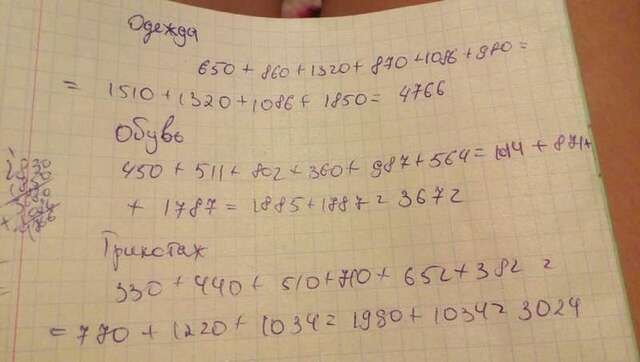 Одежда
650 + 860 + 1320 + 870 + 1086 + 980 =
= 1510 + 1320 + 1086 + 1850 = 4766
Обувь
450 + 511 + 802 + 360 + 987 + 564 = 1014 + 871 +
+ 1787 = 1885 + 1887 = 3672
Трикотаж
330 + 440 + 510 + 710 + 652 + 382 =
= 770 + 1220 + 1034 = 1980 + 1034 = 3024